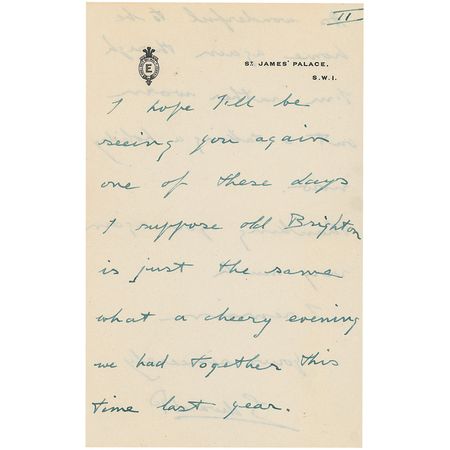 II
E
ST. JAMES' PALACE,
S.W.1.
I hope I'll be
seeing you again
one of these days
I suppose old Brighton
is just the same
what a cheery evening
we had together this
time last year.